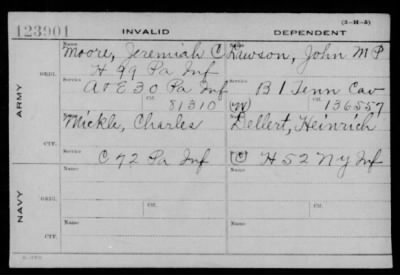 (3-H-5)
123901 INVALID DEPENDENT
Name Name
Moore, Jeremiah C Lawson, John M P
H 99 Pa Inf
ORIG. Service Ctf. Service Ctf.
A & E 30 Pa Inf B 1 Tenn Cav
81310 136557
ARMY
Name (W) Name
Mickle, Charles Dellert, Heinrich
CTF.
Service Service
C 92 Pa Inf (C) H 52 N Y Inf
Name Name
ORIG.
Service Ctf. Service Ctf.
NAVY
Name Name
CTF.
Service Service